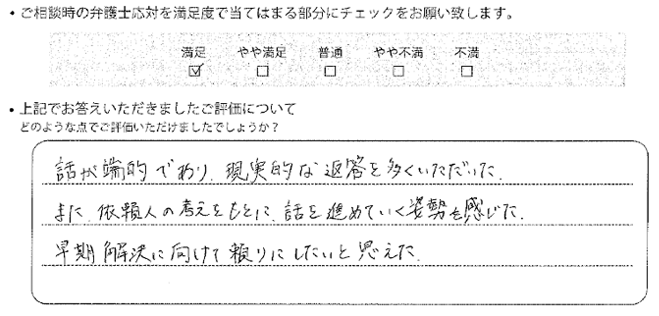 ・ご相談時の弁護士応対を満足度で当てはまる部分にチェックをお願い致します。
満足 やや満足 普通 やや不満 不満
☑ ☐ ☐ ☐ ☐
・上記でお答えいただきましたご評価について
どのような点でご評価いただけましたでしょうか?
話が端的であり、現実的な返答を多くいただいた。
また、依頼人の考えをもとに、話を進めていく姿勢を感じた。
早期解決に向けて頼りにしたいと思えた。